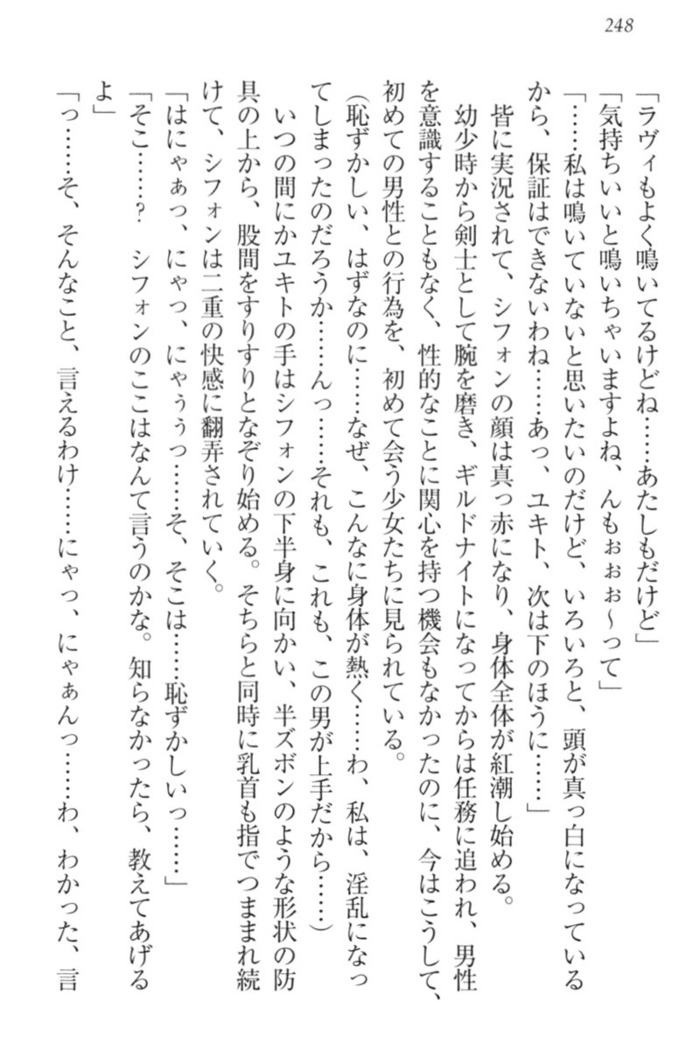 248
「ラヴィもよく鳴いてるけどね……あたしもだけど」
「気持ちいいと鳴いちゃいますよね、んもぉぉぉ～って」
「……私は鳴いていないと思いたいのだけど、いろいろと、頭が真っ白になっている
から、保証はできないわね……あっ、ユキト、次は下のほうに……」
　皆に実況されて、シフォンの顔は真っ赤になり、身体全体が紅潮し始める。
　幼少時から剣士として腕を磨き、ギルドナイトになってからは任務に追われ、男性
を意識することもなく、性的なことに関心を持つ機会もなかったのに、今はこうして、
初めての男性との行為を、初めて会う少女たちに見られている。
（恥ずかしい、はずなのに……なぜ、こんなに身体が熱く……わ、私は、淫乱になっ
てしまったのだろうか……んっ……それも、これも、この男が上手だから……）
　いつの間にかユキトの手はシフォンの下半身に向かい、半ズボンのような形状の防
具の上から、股間をすりすりとなぞり始める。そちらと同時に乳首も指でつままれ続
けて、シフォンは二重の快感に翻弄されていく。
「はにゃぁっ、にゃっ、にゃぅぅっ……そ、そこは……恥ずかしいっ……」
「そこ……？　シフォンのここはなんて言うのかな。知らなかったら、教えてあげる
よ」
「っ……そ、そんなこと、言えるわけ……にゃっ、にゃぁんっ……わ、わかった、言